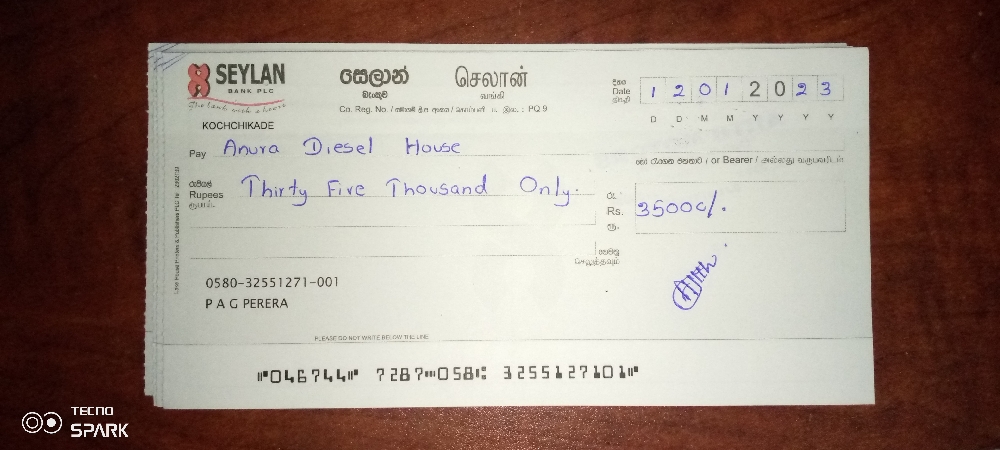 SEYLAN
BANK PLC
සෙලාන්
බැංකුව
செலான்
வங்கி
Co. Reg. No. / : PQ 9
දිනය
Date
திகதி
1 2 0 1 2 0 2 3
D D M M Y Y Y Y
KOCHCHIKADE
Pay Anura Diesel House
/ or Bearer / அல்லது
රුපියල්
Rupees Thirty Five Thousand Only.
ரூபாய்
රු.
Rs. 35000/.
ரூ.
0580-32551271-001
P A G PERERA
PLEASE DO NOT WRITE BELOW THE LINE
⑈046744⑈ 7287⑉058⑆ 3255127101⑈
TECNO
SPARK